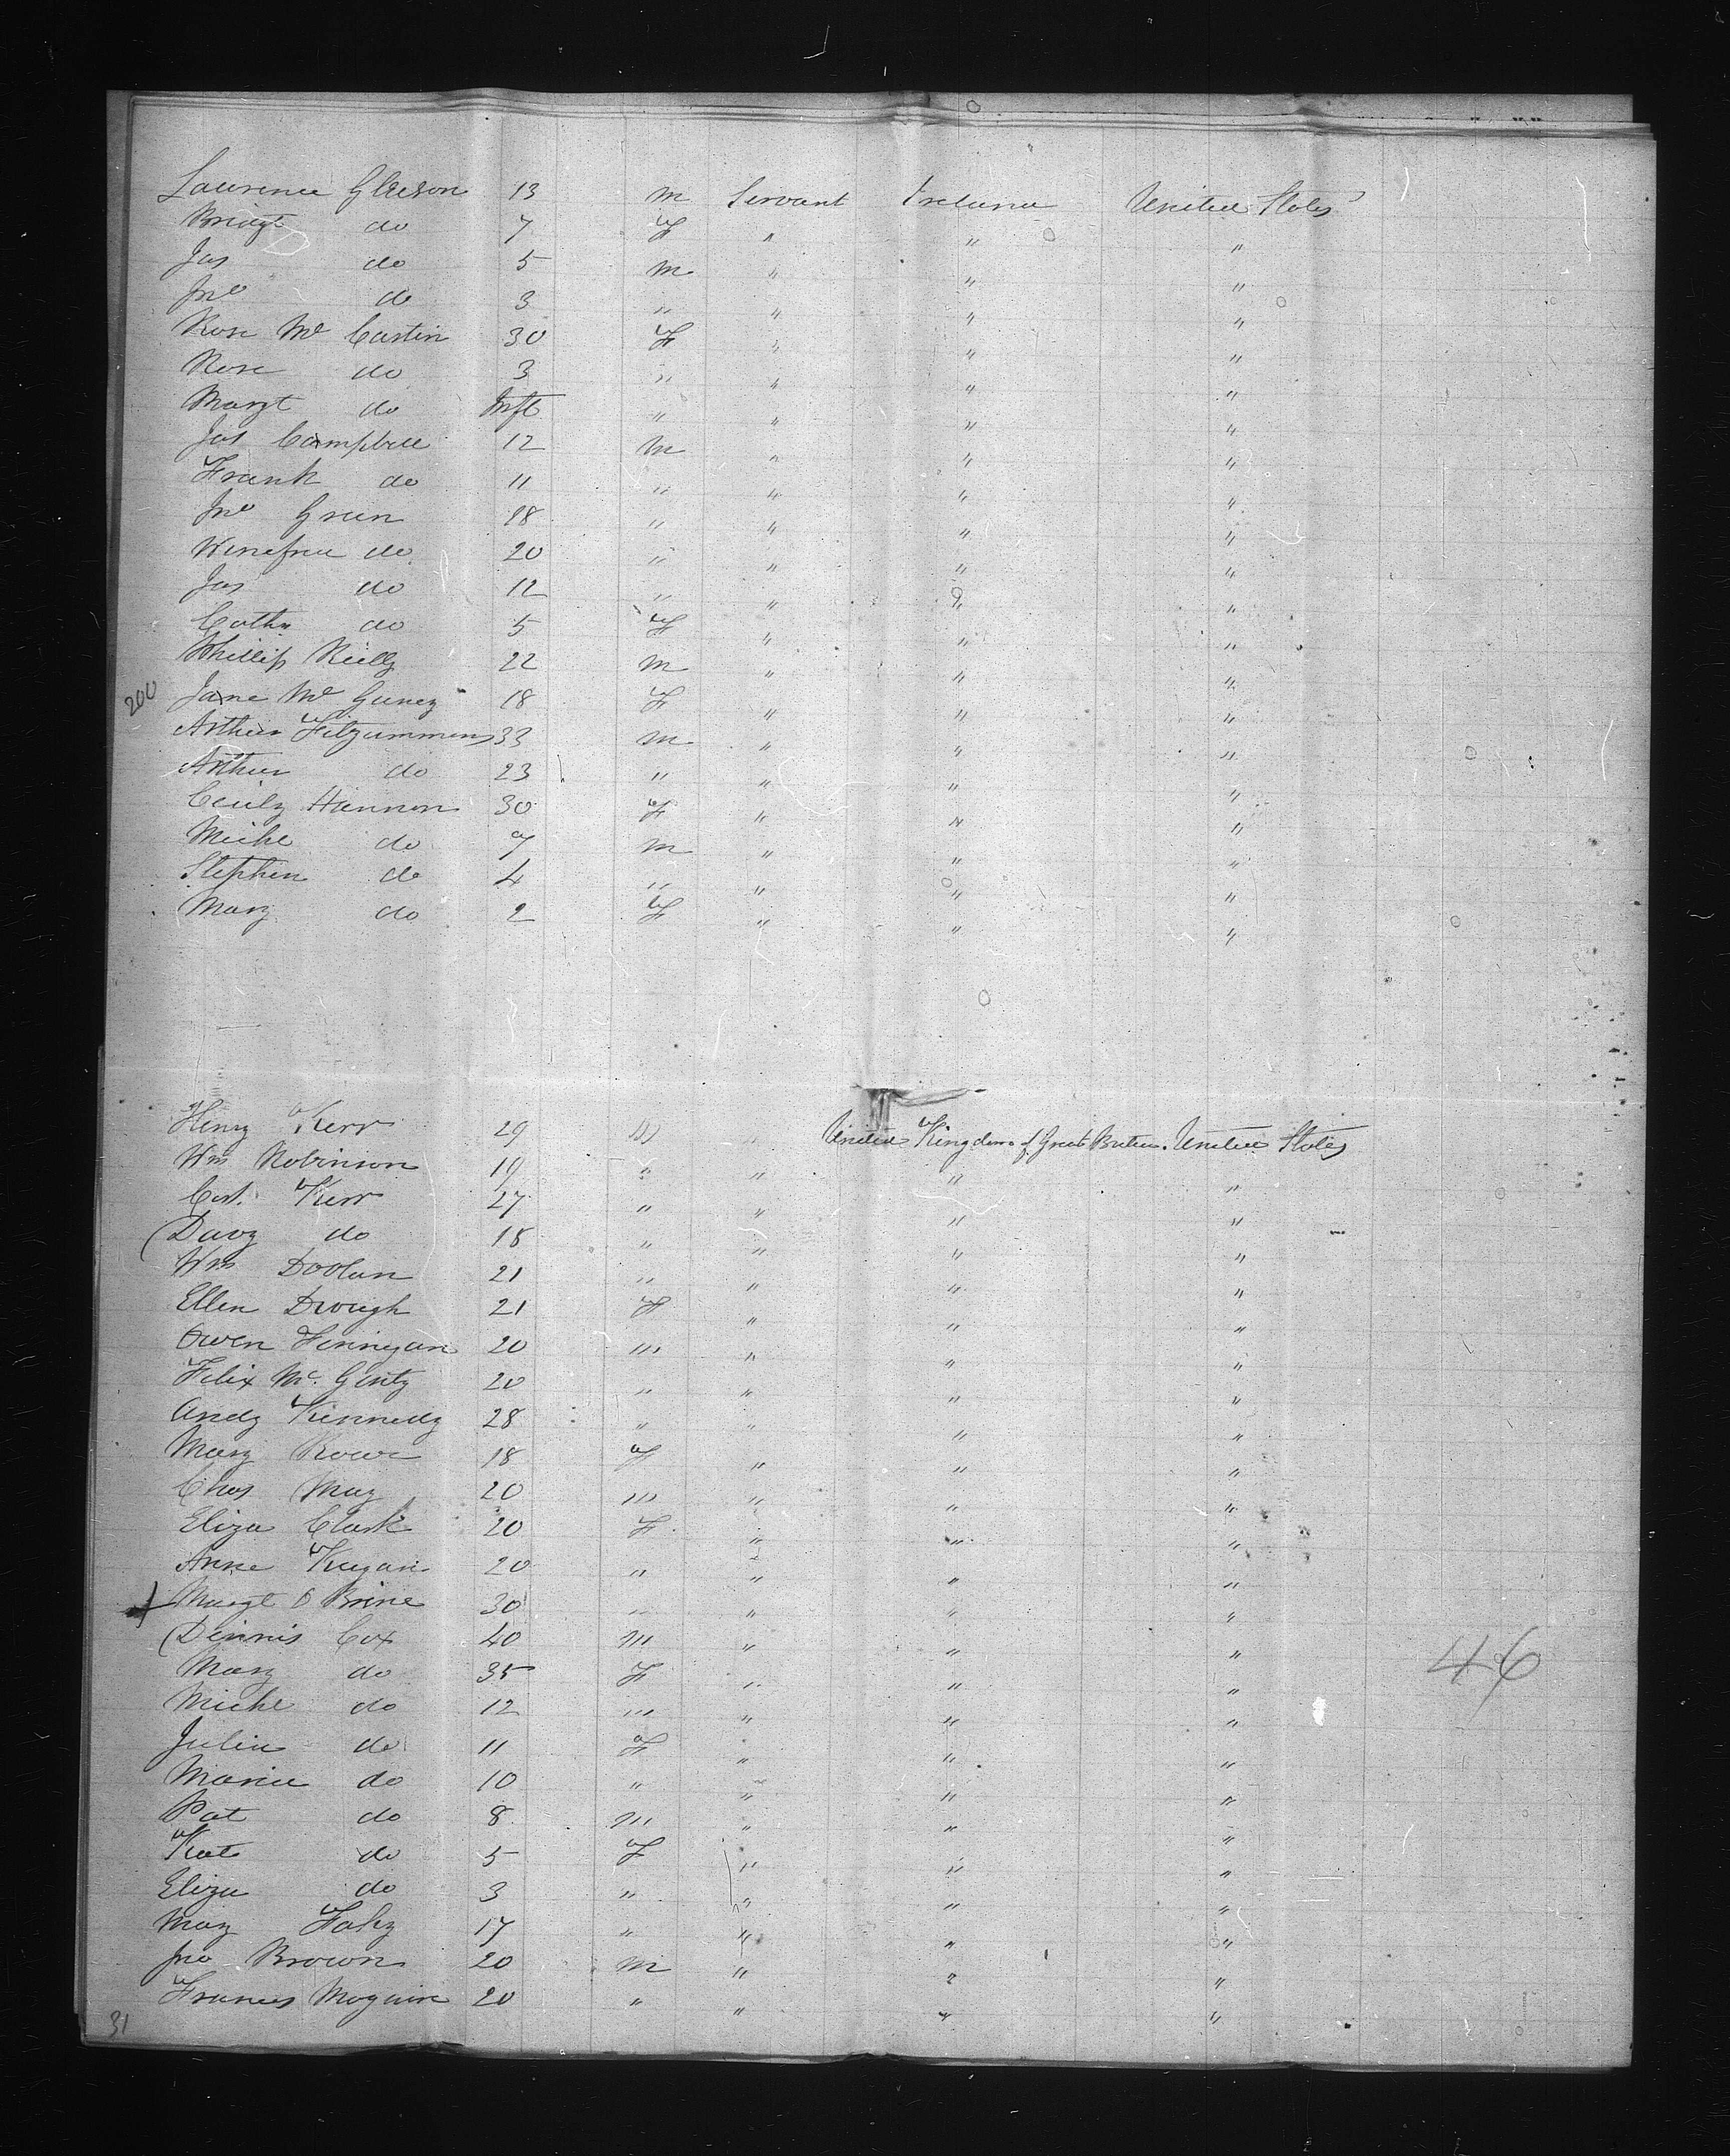 Laurence Gleeson 13 m Servant Ireland United States
Bridgt do 7 F " " "
Jas do 5 m " " "
Jno do 3 " " " "
Rose Mc Castin 30 F " " "
Rose do 3 " " " "
Margt do Inft " " " "
Jas Campbell 12 m " " "
Frank do 11 " " " "
Jno Green 18 " " " "
Winefree do 20 " " " "
Jas do 12 " " " "
Cathn do 5 F " " "
Phillip Reilly 22 m " " "
200 Jane Mc Guney 18 F " " "
Arthur Fitzummens 33 m " " "
Arthur do 23 " " " "
Cecily Hannon 30 F " " "
Michl do 7 m " " "
Stephen do 4 " " " "
Mary do 2 F " " "
Henry Kerr 29 m " United Kingdom of Great Britain. United States
Wm Robinson 19 " " " "
Cast. Kerr 27 " " " "
(Davy do 18 " " " "
Wm Doolan 21 " " " "
Ellen Drough 21 F " " "
Owen Finnigan 20 m " " "
Felix Mc. Ginty 20 " " " "
Andy Kennedy 28 " " " "
Mary Rowe 18 F " " "
Chas May 20 m " " "
Eliza Clark 20 F " " "
Anne Keegan 20 " " " "
Margt O Brine 30 " " " "
(Dinnis Cox 40 m " " "
Mary do 35 F " " "
46
Michl do 12 m " " "
Julia do 11 F " " "
Maria do 10 " " " "
Pat do 8 m " " "
Kate do 5 F " " "
Eliza do 3 " " " "
May Fahy 17 " " " "
Jno Brown 20 m " " "
Frances Maguire 20 " " " "
31